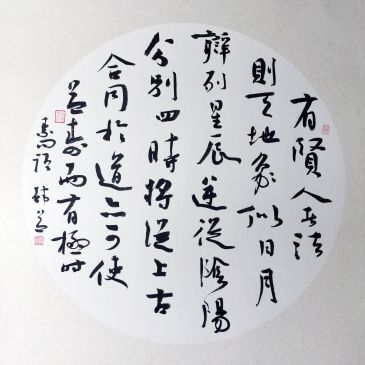 有賢人者法
則天地象似日月
辯列星辰逆從陰陽
分別四時將從上古
合同於道亦可使
益壽而有極时
素问语